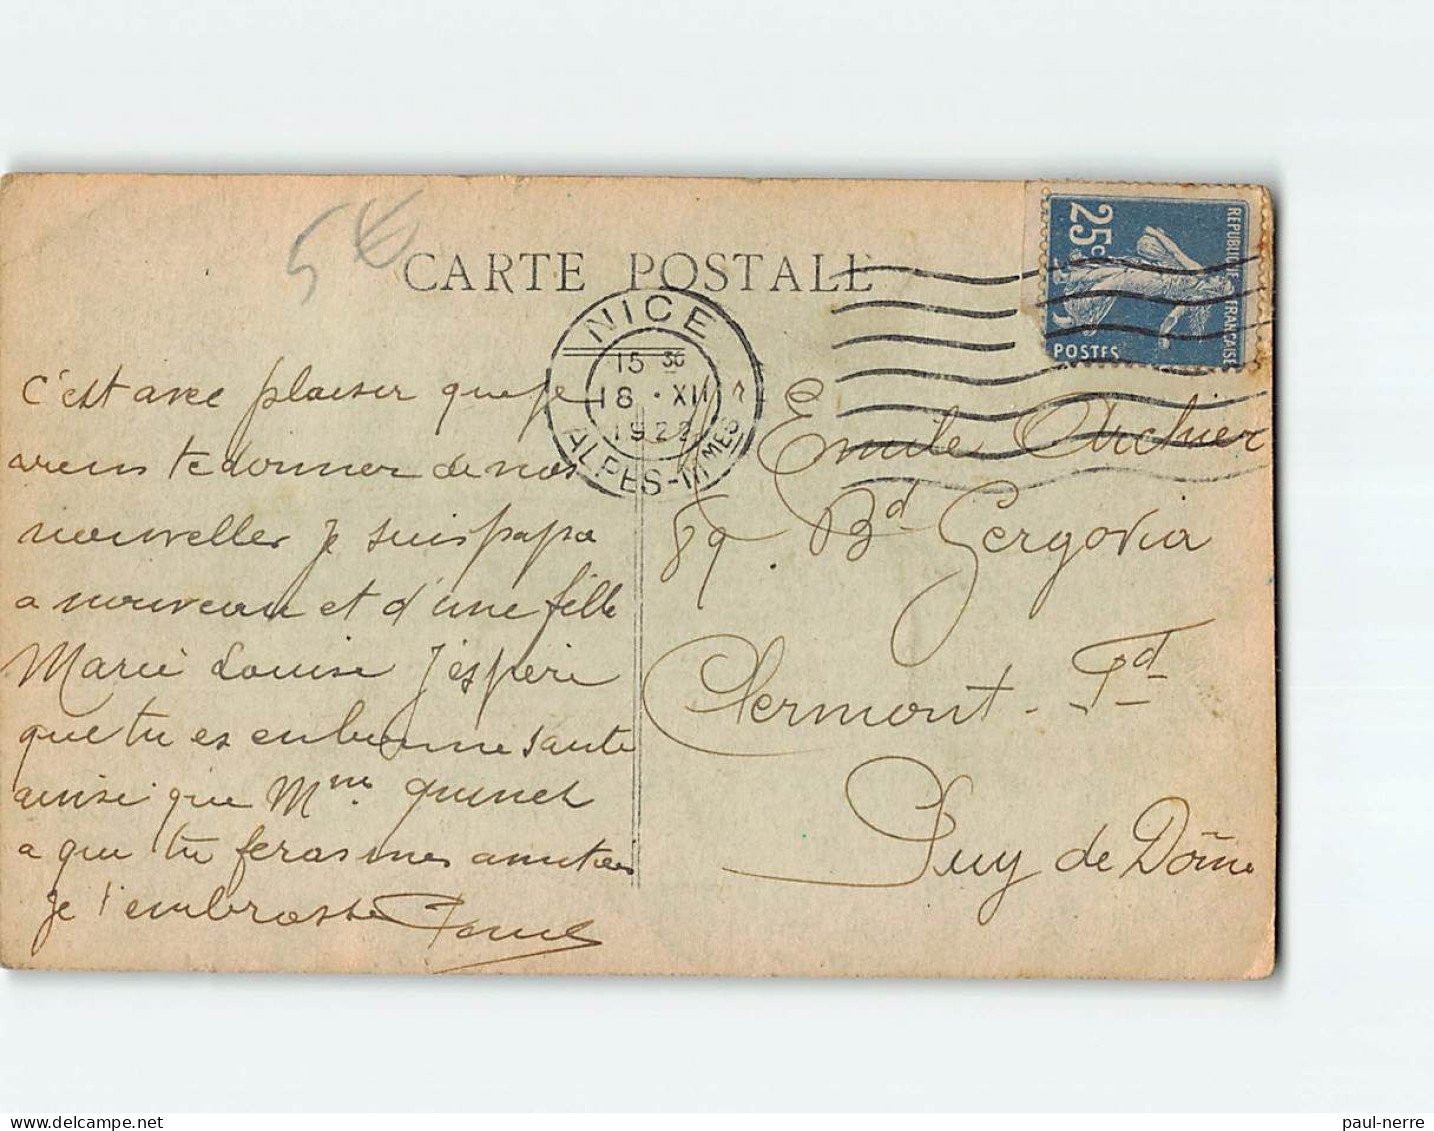 5€
CARTE POSTALE
25c
REPUBLIQUE FRANÇAISE
POSTES
NICE
15 30
18 • XII
1922
ALPES-MMES
c'est avec plaisir que je
viens te donner de nos
nouvelles je suis papa
a nouveau et d'une fille
Marie Louise J'espère
que tu es en bonne santé
ainsi que Mme Quinet
a qui tu feras mes amitiés
je t'embrasse Paul
Emile Archier
89. Bd Gergovia
Clermont-Fd
Puy de Dôme
paul-nerre